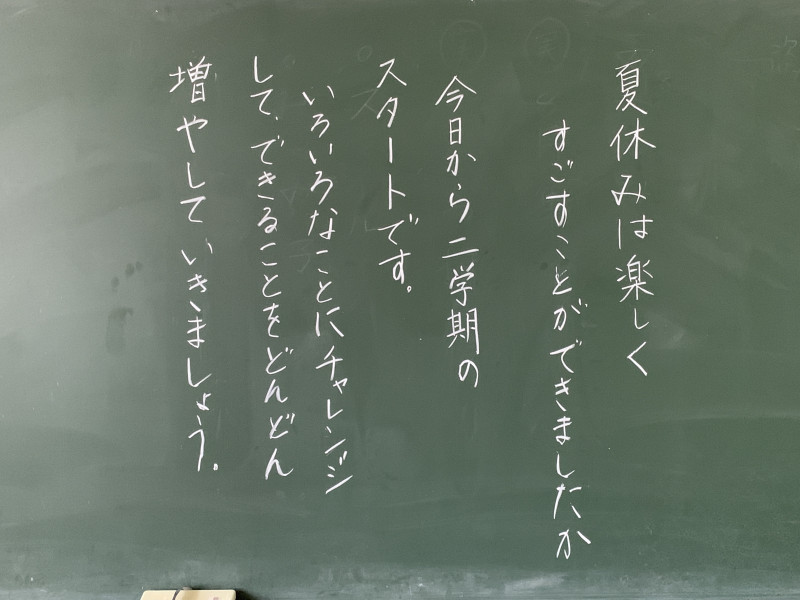 夏休みは楽しく
すごすことができましたか
今日から二学期の
スタートです。
いろいろなことにチャレンジ
して、できることをどんどん
増やしていきましょう。